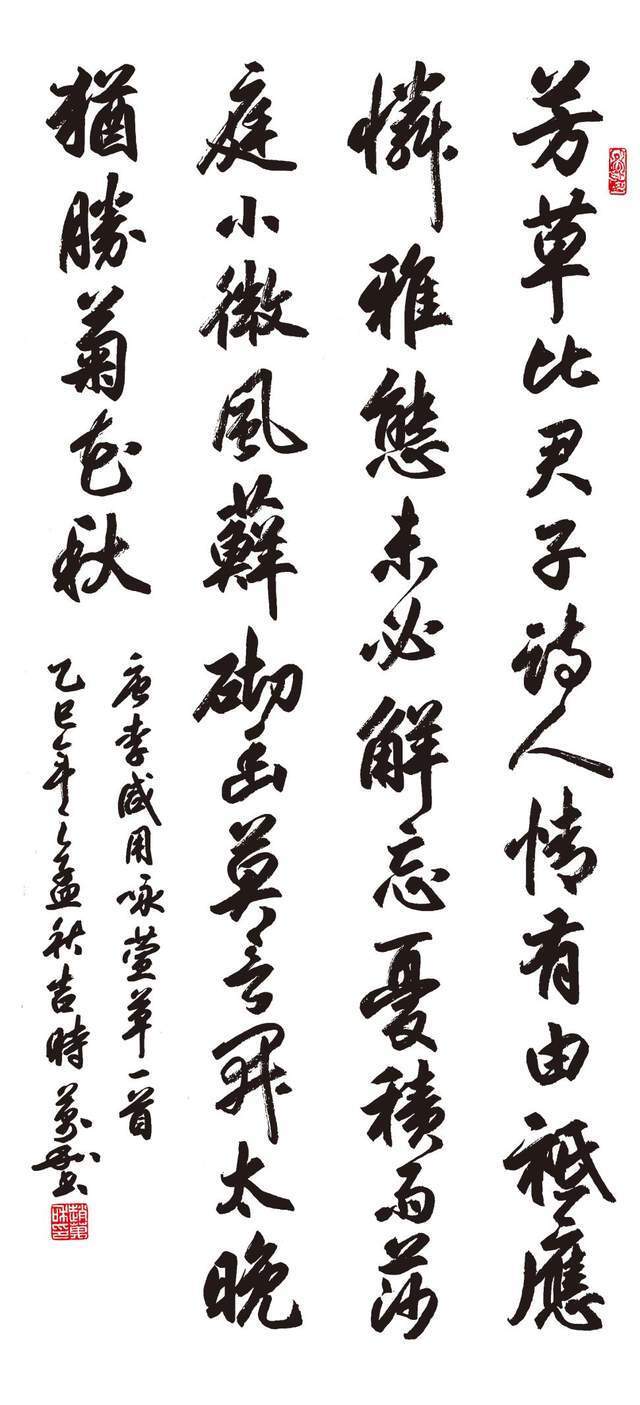 芳草比君子诗人情有由祗應
憐雅態未必解忘憂積雨莎
庭小微風蘚砌幽莫言開太晚
猶勝菊花秋
唐李咸用咏萱草一首
乙巳年之孟秋吉時萬